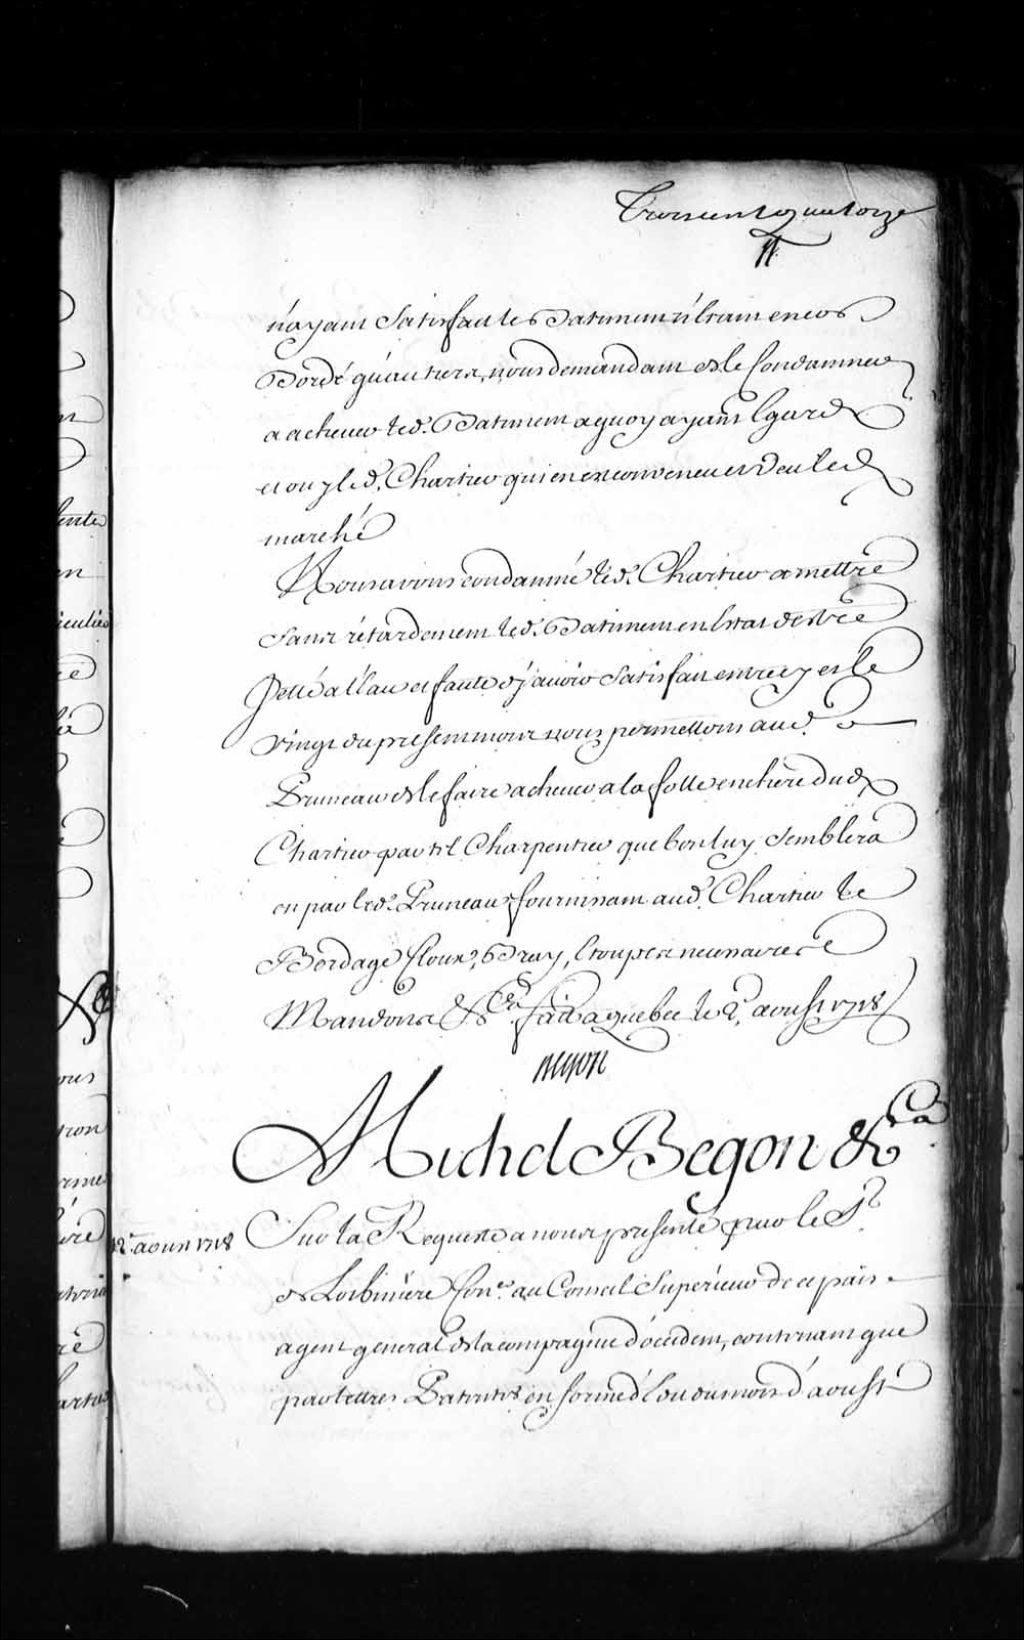 Trois cent quatorze
n'ayant Satisfait led Batiment n'Etant encore
Bordé qu'au tiers, nous demandant de le Condamner
a achever led. Batiment a quoy ayant Egard
et ouy led. Chartier qui en est convenu et veu led
marché
Nous avons condamné led. Chartier a mettre
sans retardement led. Batiment en Etat d'estre
Jetté a l'Eau et faute d'y avoir Satisfait entre cy et le
vingt du present mois nous permettons aud.
Pruneau de le faire achever a la folle enchere dud
Chartier par tel Charpentier que bon luy Semblera
en par led. Pruneau fournissant aud. Chartier le
Bordage Cloux, Bray, Etoupes necessaires
Mandons &ca. fait a quebec le 2e. aoust 1718
Begon
Michel Begon &Ca
12e. aoust 1718
Sur la Requeste a nous presenté par le Sr.
de Lotbiniere Coner. au Conseil Superieur de ce païs
agent general de la compagnie d'occident, contenant que
par lettres Patentes en forme d'Edit du mois d'aoust